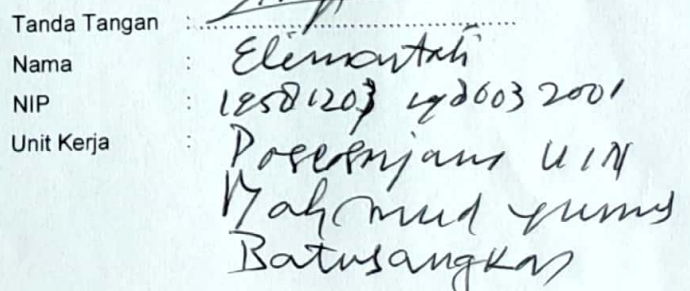 Tanda Tangan :
Nama : Elimartati
NIP : 19581203 198603 2001
Unit Kerja : Pascasarjana UIN
Mahmud Yunus
Batusangkar